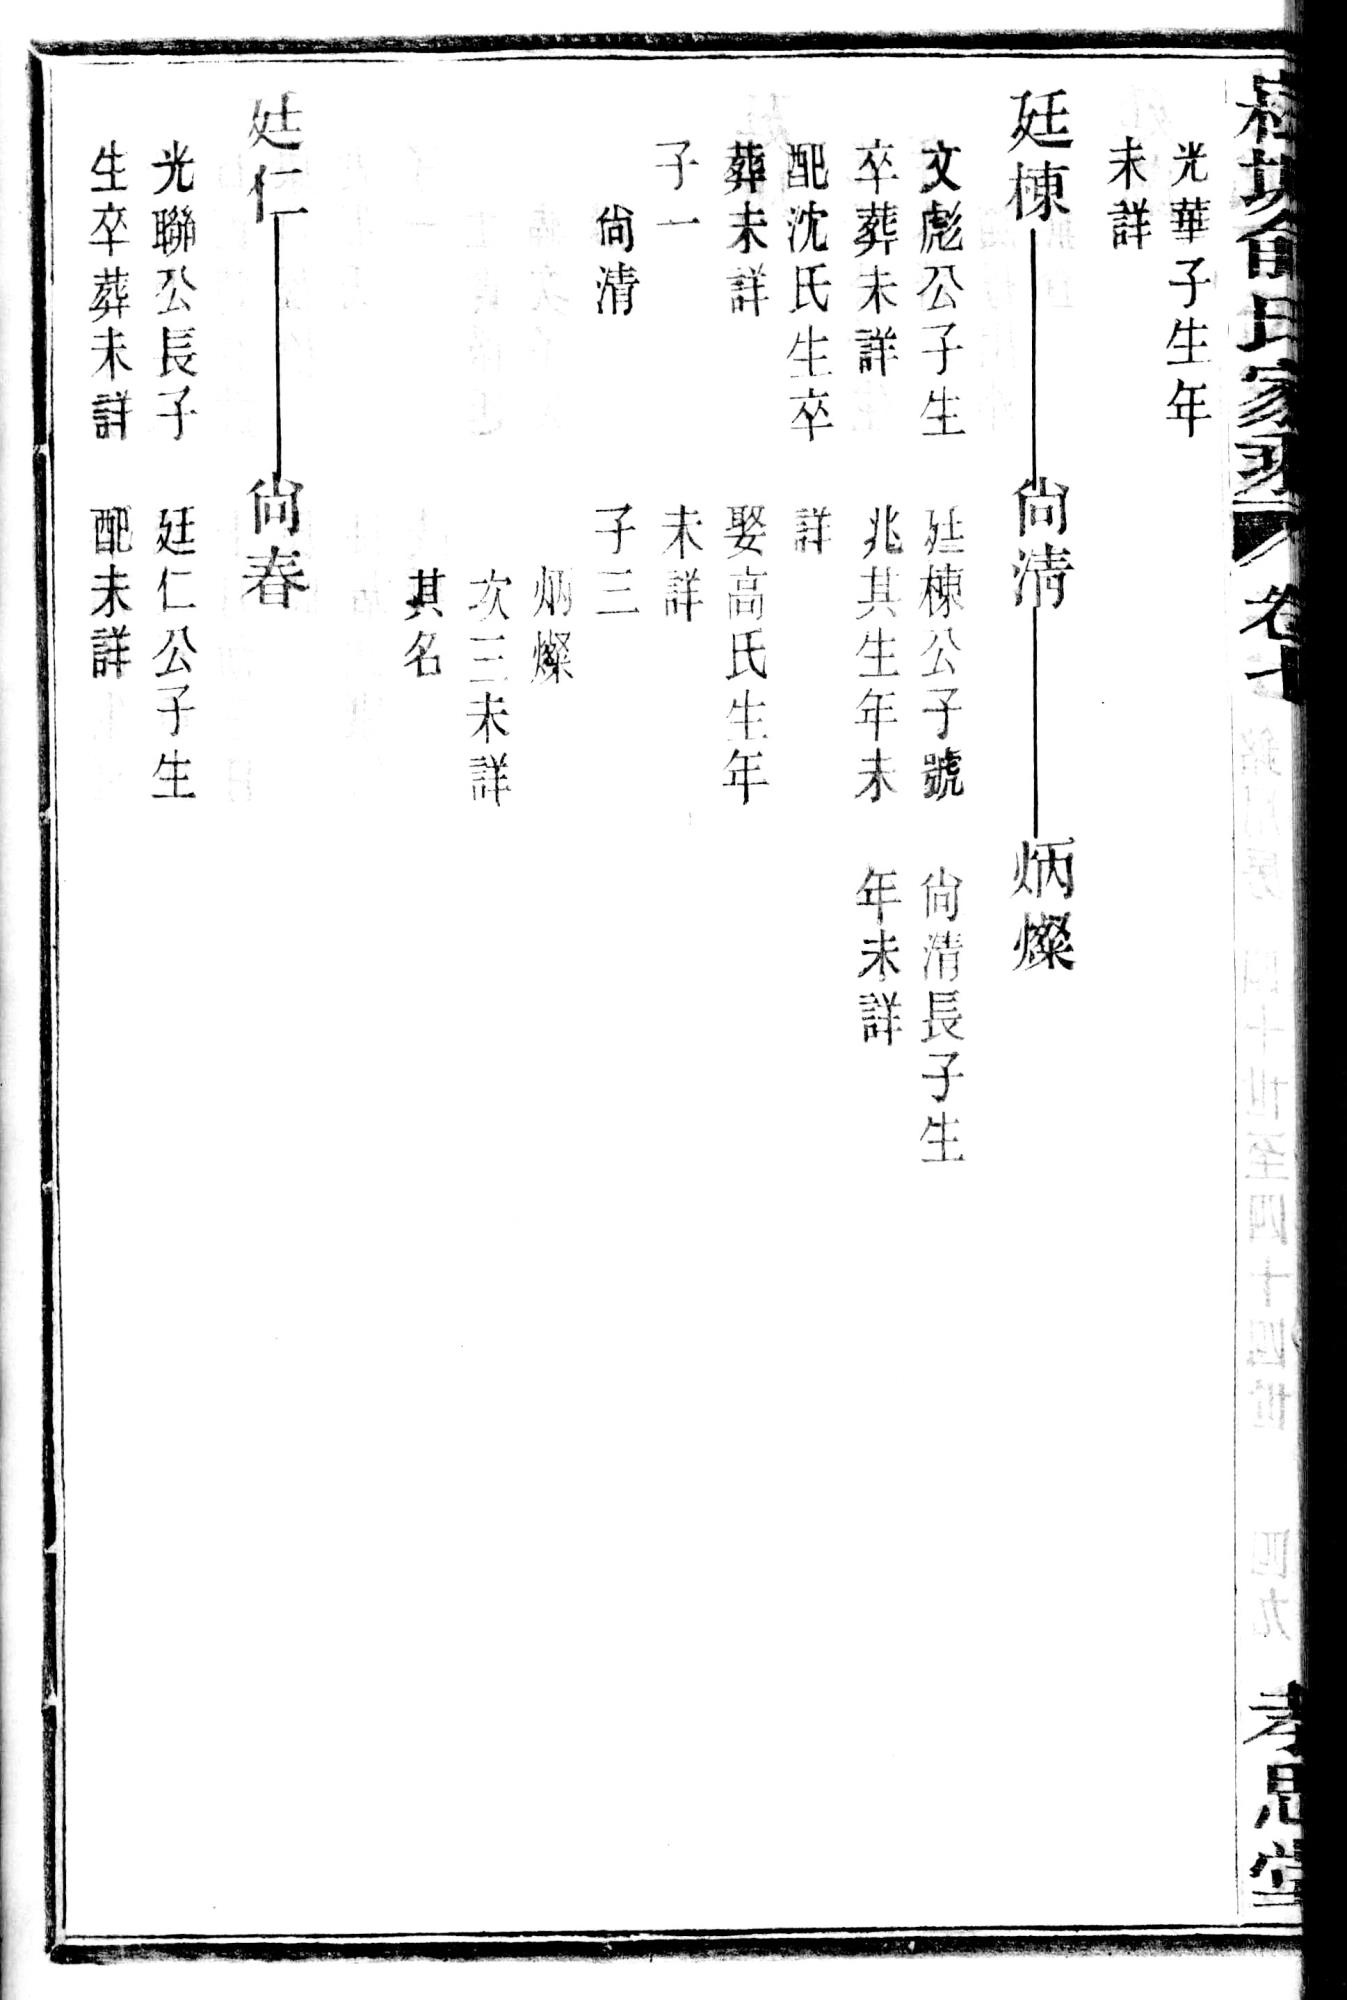 俞氏家乘 卷十
四十世至四十四世
四九
孝思堂
光華子生年
未詳
廷棟 尙清 炳燦
文彪公子生
卒葬未詳
配沈氏生卒
葬未詳
子一
尙清
廷棟公子號
兆其生年未
詳
娶高氏生年
未詳
子三
炳燦
次三未詳
其名
尙清長子生
年未詳
廷仁 尙春
光聯公長子
生卒葬未詳
廷仁公子生
配未詳